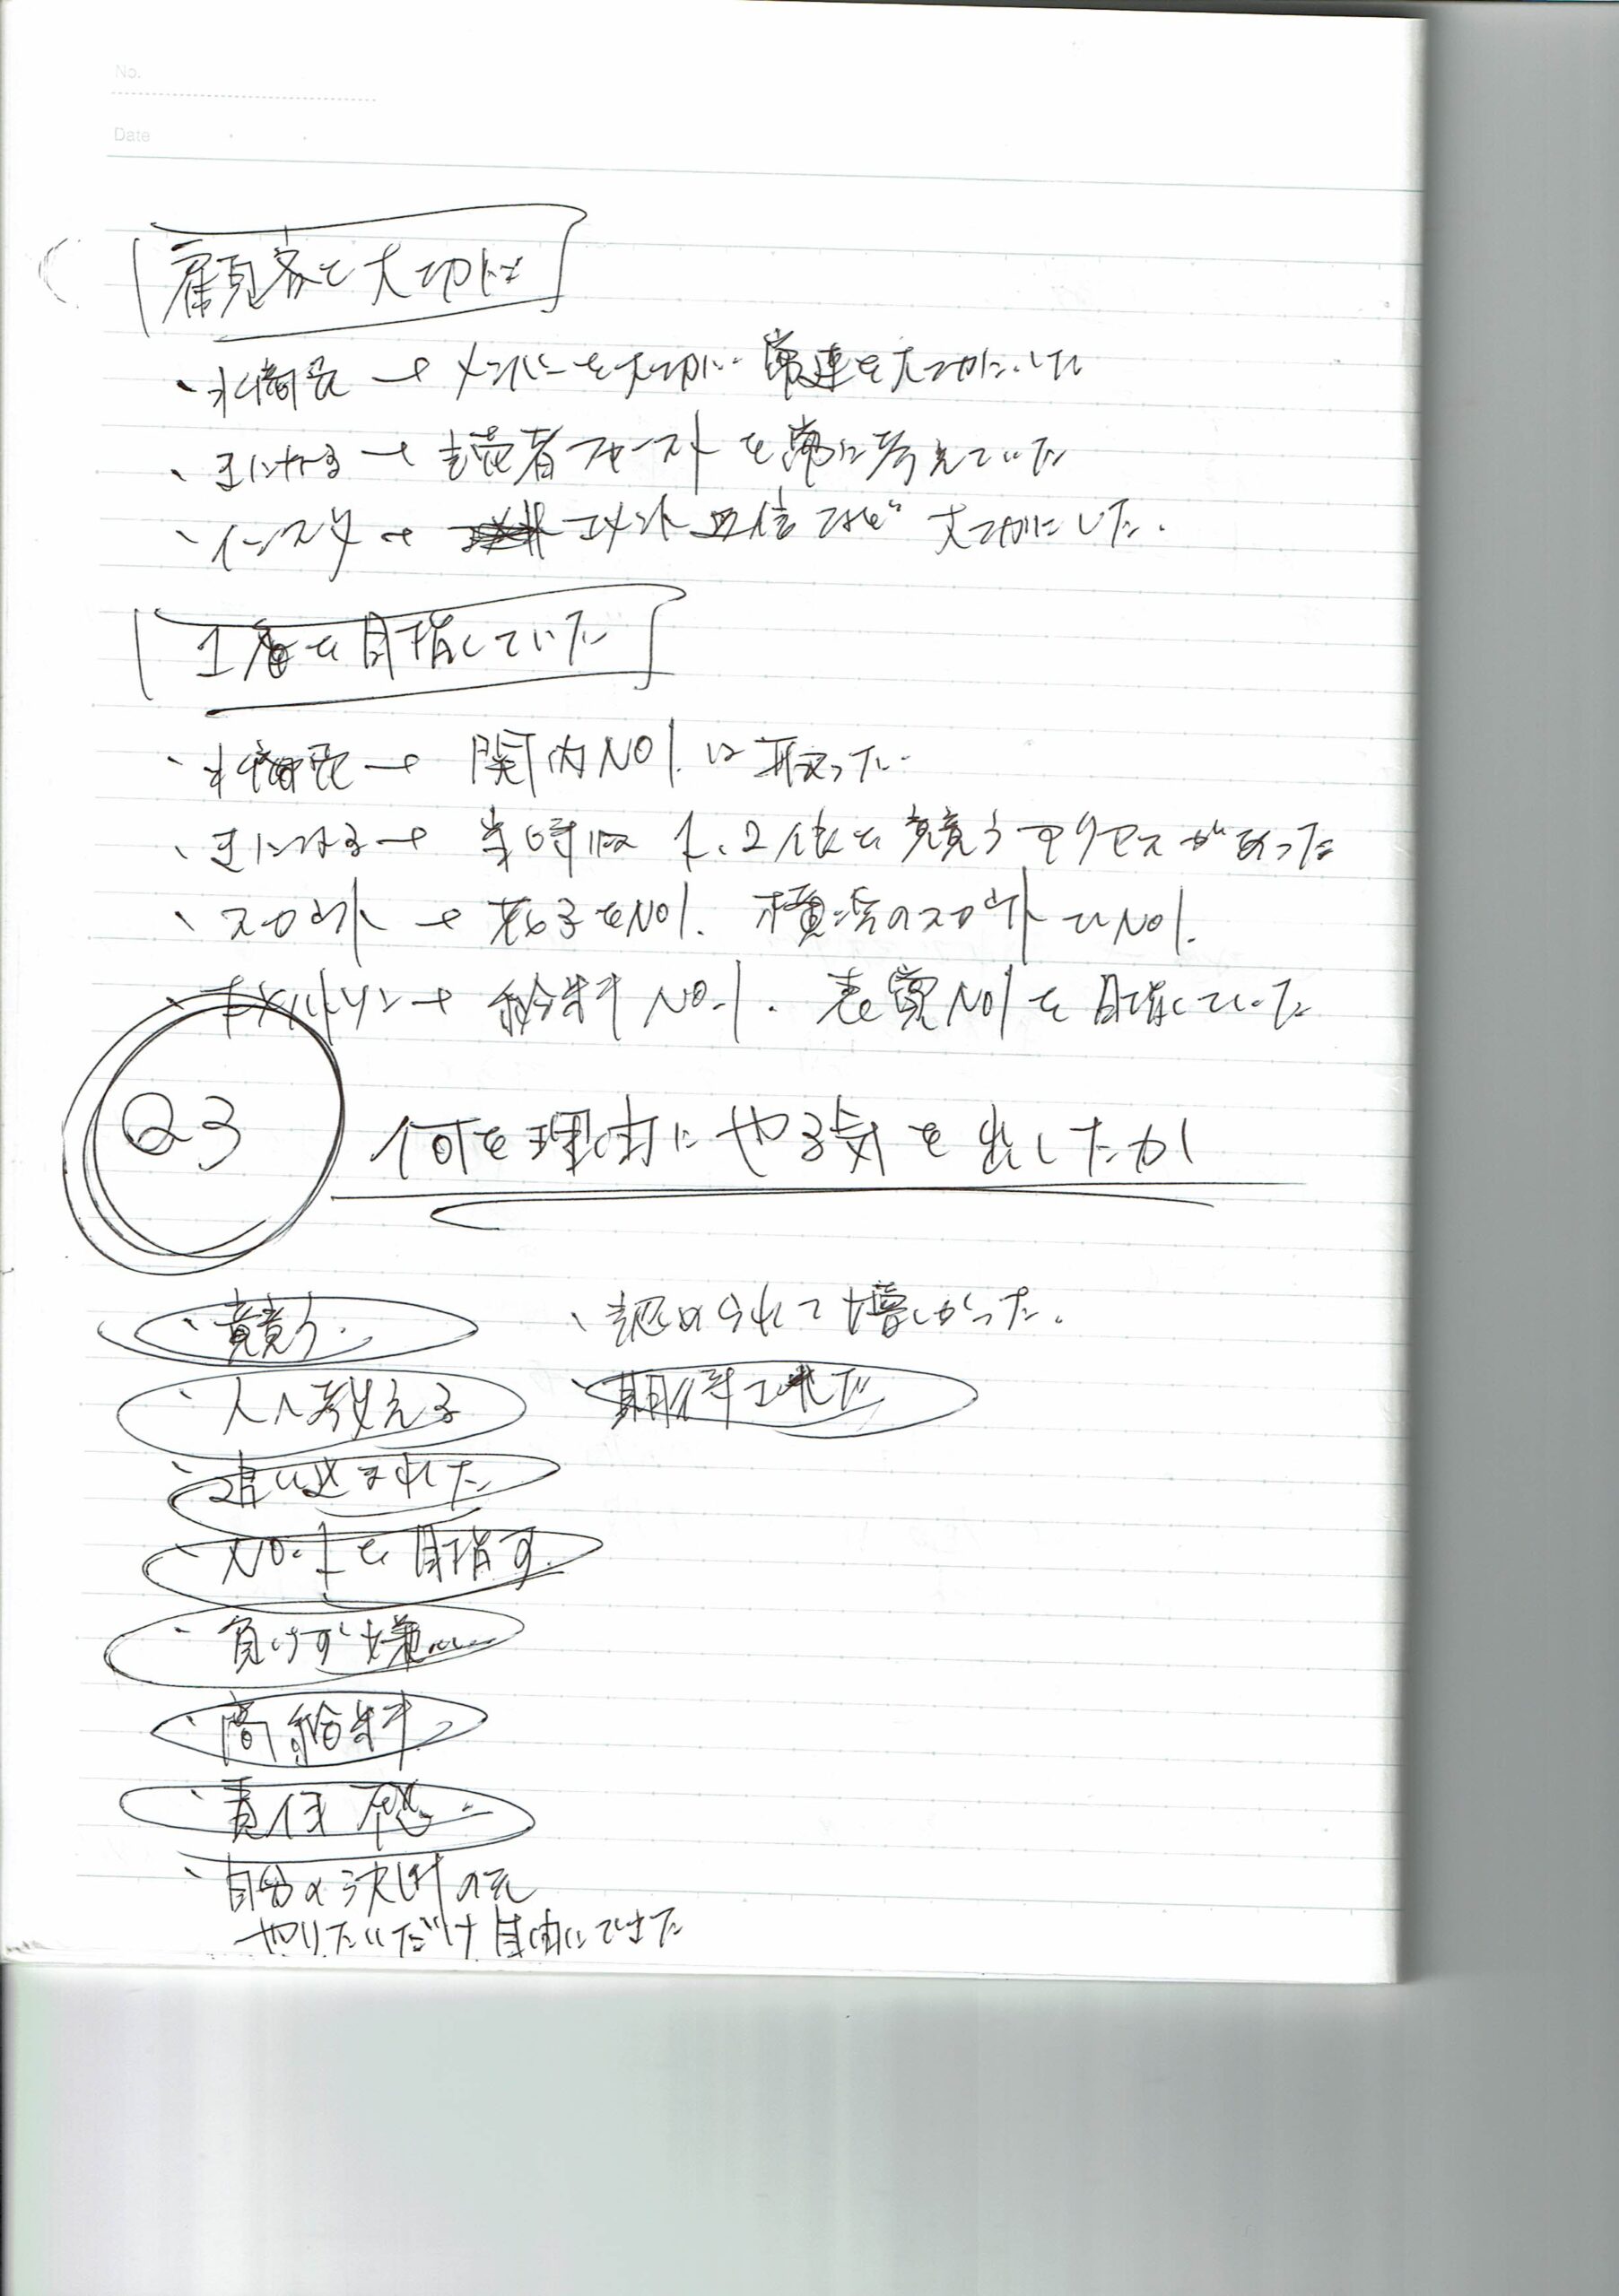 No.
Date
顧客を大切に
・水商売 → メンバーを大切に 常連を大切にした
・まにやる → 読者ファーストを常に考えていた
・インスタ → コメント返信など 大切にした.
1番を目指していた
・水商売 → 関内NO1.は取った.
・まになる → 当時は 1、2位を競うアクセスがあった
・スカウト → 女の子もNO1. 横浜のスカウトでNO1.
→ 給料NO.1. 表賞NO1を目指していた
Q3 何を理由にやる気を出したか
・競う. ・認められて嬉しかった.
・人へ教える ・期待された
・追い込まれた
・NO.1を目指す.
・負けず嫌い
・高給料
・責任感
・自分の決断の元
やりたいだけ自由にできた